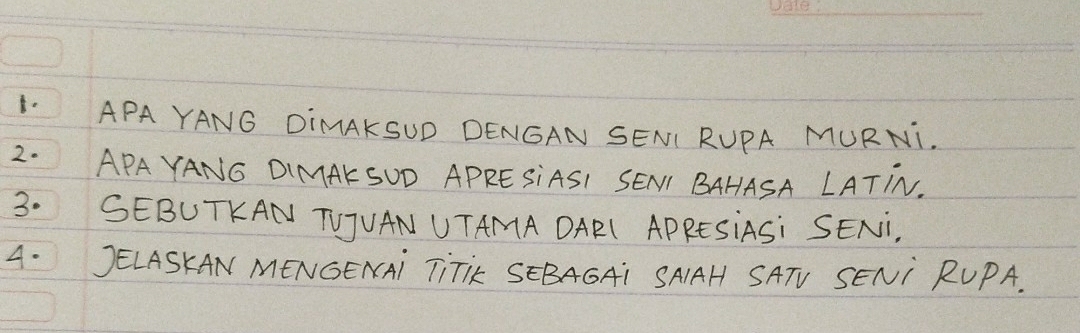 Date :
1. APA YANG DIMAKSUD DENGAN SENI RUPA MURNI.
2. APA YANG DIMAKSUD APRESIASI SENI BAHASA LATIN.
3. SEBUTKAN TUJUAN UTAMA DARI APRESIASI SENI.
4. JELASKAN MENGENAI TITIK SEBAGAI SALAH SATU SENI RUPA.